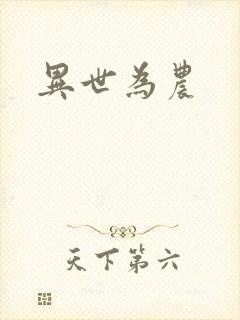 異世為農
天下第六